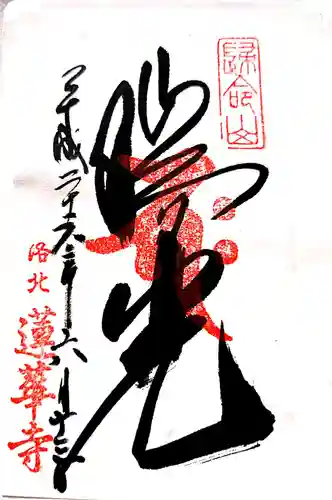 歸命山
瑞光
平成二十六年六月十三日
洛北
蓮華寺